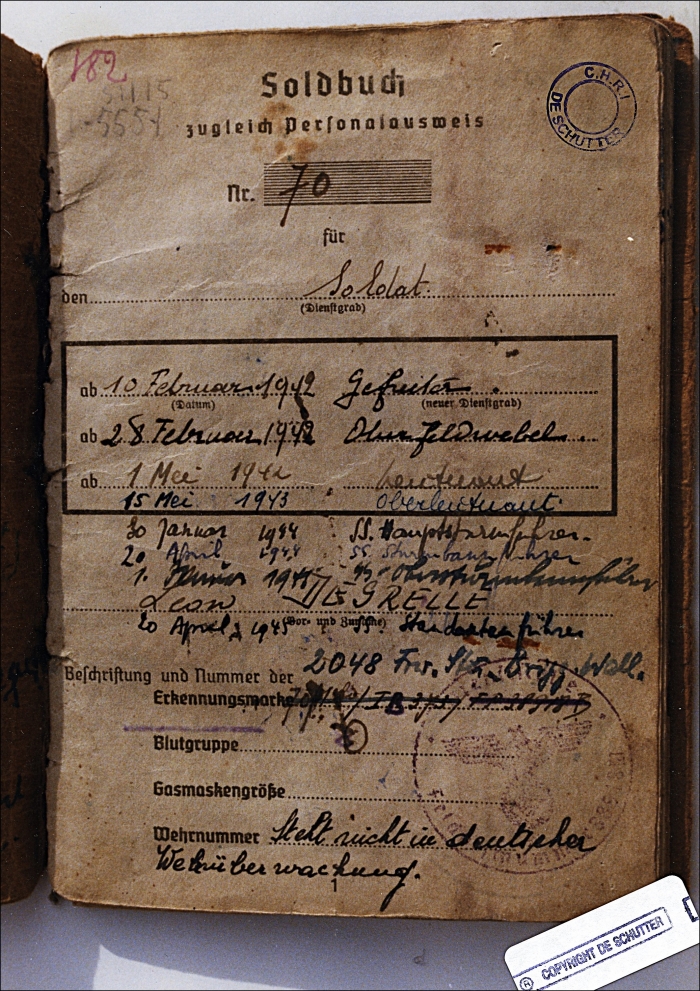 182
5415
5554
C.H.R.!
DE SCHUTTER
Soldbuch
zugleich Personalausweis
Nr. 70
für
den Soldat.
(Dienstgrad)
ab 10 Februar 1942 Gefreiter
(Datum) (neuer Dienstgrad)
ab 28 Februar 1942 Oberfeldwebel
ab 1 Mei 1942 Leutnant
15 Mei 1943 Oberleutnant.
30 Januar 1944 SS. Hauptsturmführer.
20 April 1944 SS. Sturmbannführer
1. Januar 1945 SS-Obersturmbannführer
Leon DEGRELLE
(Vor- und Zuname)
20 April 1945 SS. Standartenführer
Beschriftung und Nummer der 2048 Frw. Stu. Brig. Wall.
Erkennungsmarke
Blutgruppe
Gasmaskengröße
Wehrnummer Steht nicht in deutscher
Wehrüberwachung.
1
® COPYRIGHT DE SCHUTTER